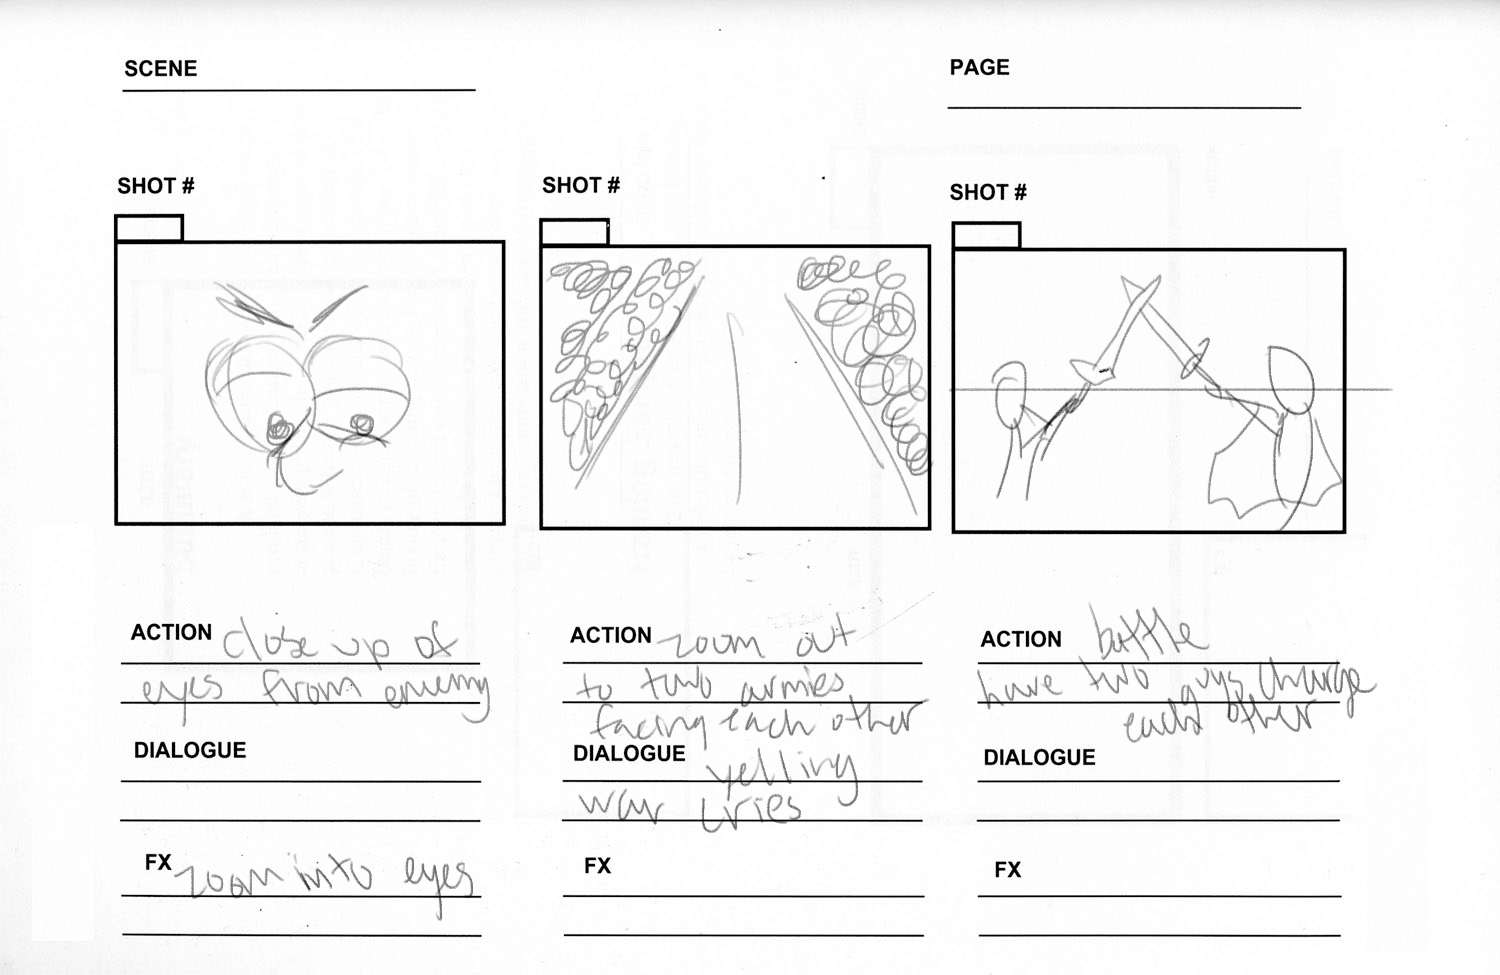 SCENE
PAGE
SHOT #
SHOT #
SHOT #
ACTION close up of
eyes from enemy
DIALOGUE
FX zoom into eyes
ACTION zoom out
to two armies
facing each other
DIALOGUE yelling
war cries
FX
ACTION battle
have two guys charge
each other
DIALOGUE
FX